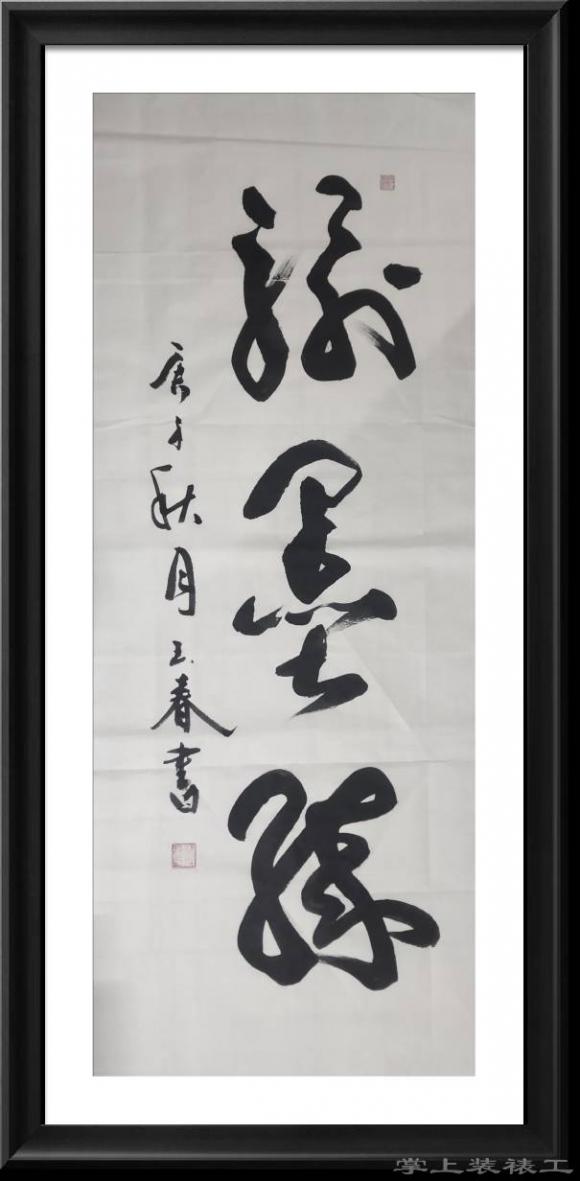 翰墨緣
庚子秋月玉春書
掌上装裱工